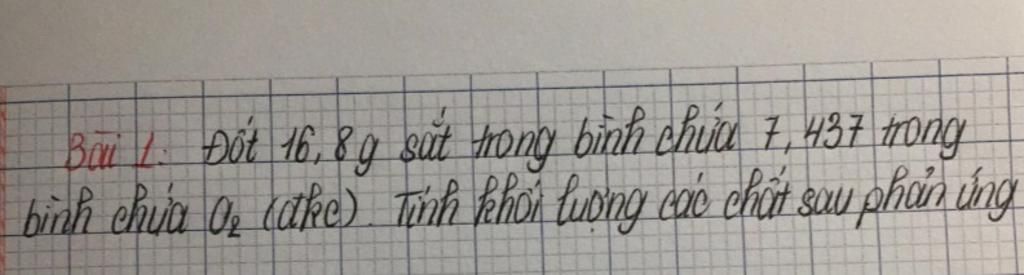 Bài 1: Đốt 16,8g sắt trong bình chứa 7,437 trong
bình chứa O₂ (đkc). Tính khối lượng các chất sau phản ứng